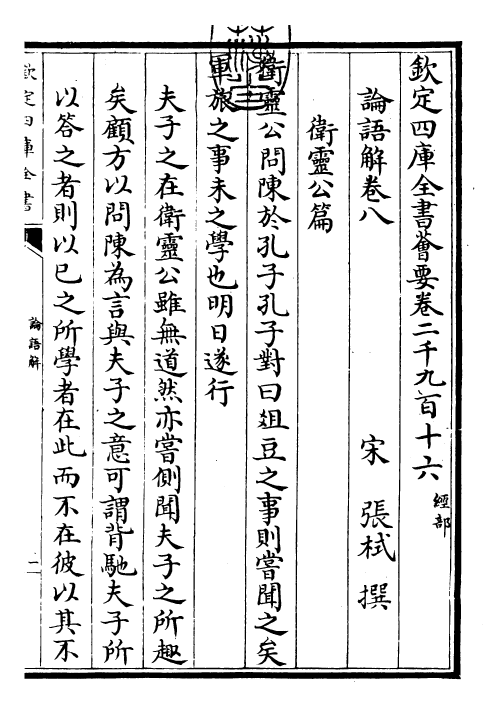 欽定四庫全書薈要卷二千九百十六 經部
論語解卷八 宋 張栻 撰
衛靈公篇
衛靈公問陳於孔子孔子對曰俎豆之事則嘗聞之矣
軍旅之事未之學也明日遂行
夫子之在衛靈公雖無道然亦嘗側聞夫子之所趣
矣顧方以問陳為言與夫子之意可謂背馳夫子所
以答之者則以已之所學者在此而不在彼以其不
欽定四庫全書
論語解
一